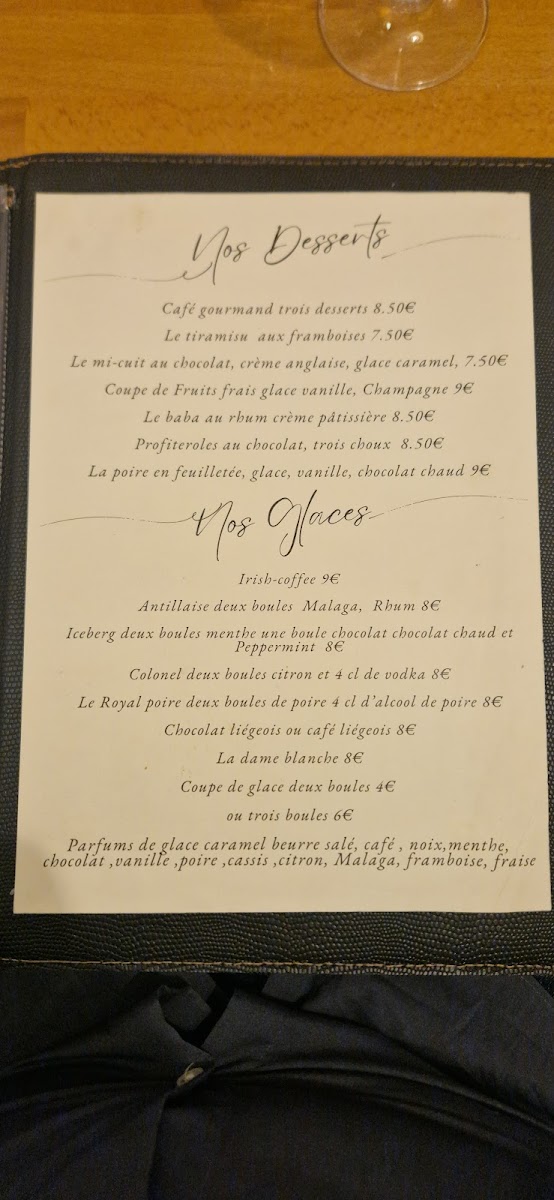 Nos Desserts
Café gourmand trois desserts 8.50€
Le tiramisu aux framboises 7.50€
Le mi-cuit au chocolat, crème anglaise, glace caramel, 7.50€
Coupe de Fruits frais glace vanille, Champagne 9€
Le baba au rhum crème pâtissière 8.50€
Profiteroles au chocolat, trois choux 8.50€
La poire en feuilletée, glace, vanille, chocolat chaud 9€
Nos Glaces
Irish-coffee 9€
Antillaise deux boules Malaga, Rhum 8€
Iceberg deux boules menthe une boule chocolat chocolat chaud et
Peppermint 8€
Colonel deux boules citron et 4 cl de vodka 8€
Le Royal poire deux boules de poire 4 cl d'alcool de poire 8€
Chocolat liégeois ou café liégeois 8€
La dame blanche 8€
Coupe de glace deux boules 4€
ou trois boules 6€
Parfums de glace caramel beurre salé, café , noix,menthe,
chocolat ,vanille ,poire ,cassis ,citron, Malaga, framboise, fraise